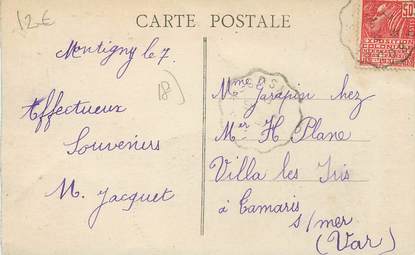 12€
CARTE POSTALE
50
EXPOSITION
COLONIALE
Montigny le 7.
18)
Effectueux
Souvenirs
M. Jacquet
Mme Jarapin chez
Mer H Plane
Villa les Iris
à Tamaris
s/mer
(Var)